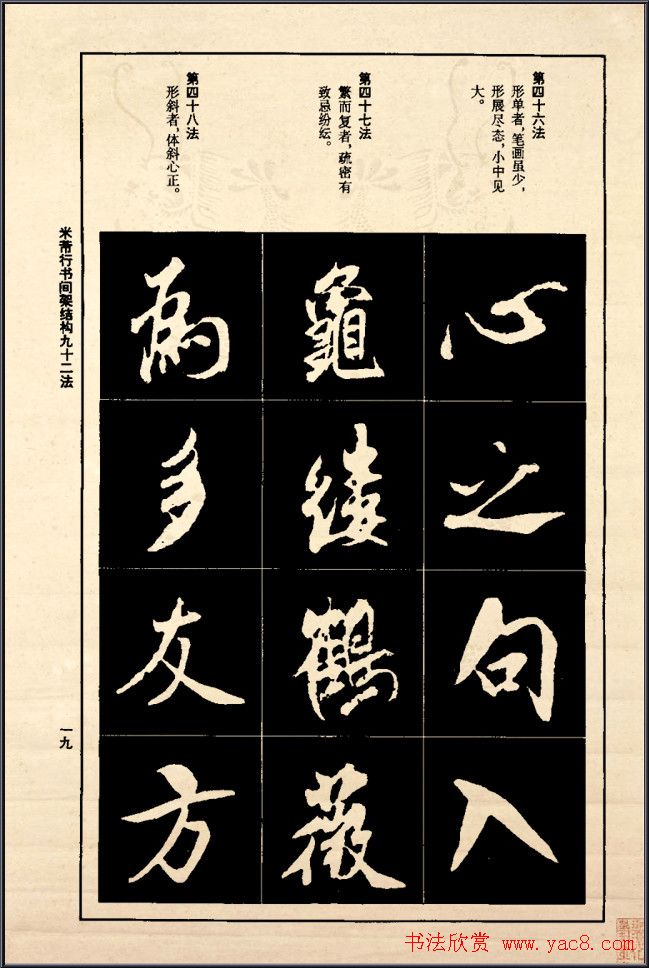 第四十六法
形单者，笔画虽少，
形展尽态，小中见
大。
心
之
句
入
第四十七法
繁而复者，疏密有
致忌纷纭。
龟
缕
鹤
薇
第四十八法
形斜者，体斜心正。
为
多
友
方
米芾行书间架结构九十二法
一九
书法欣赏 www.yac8.com